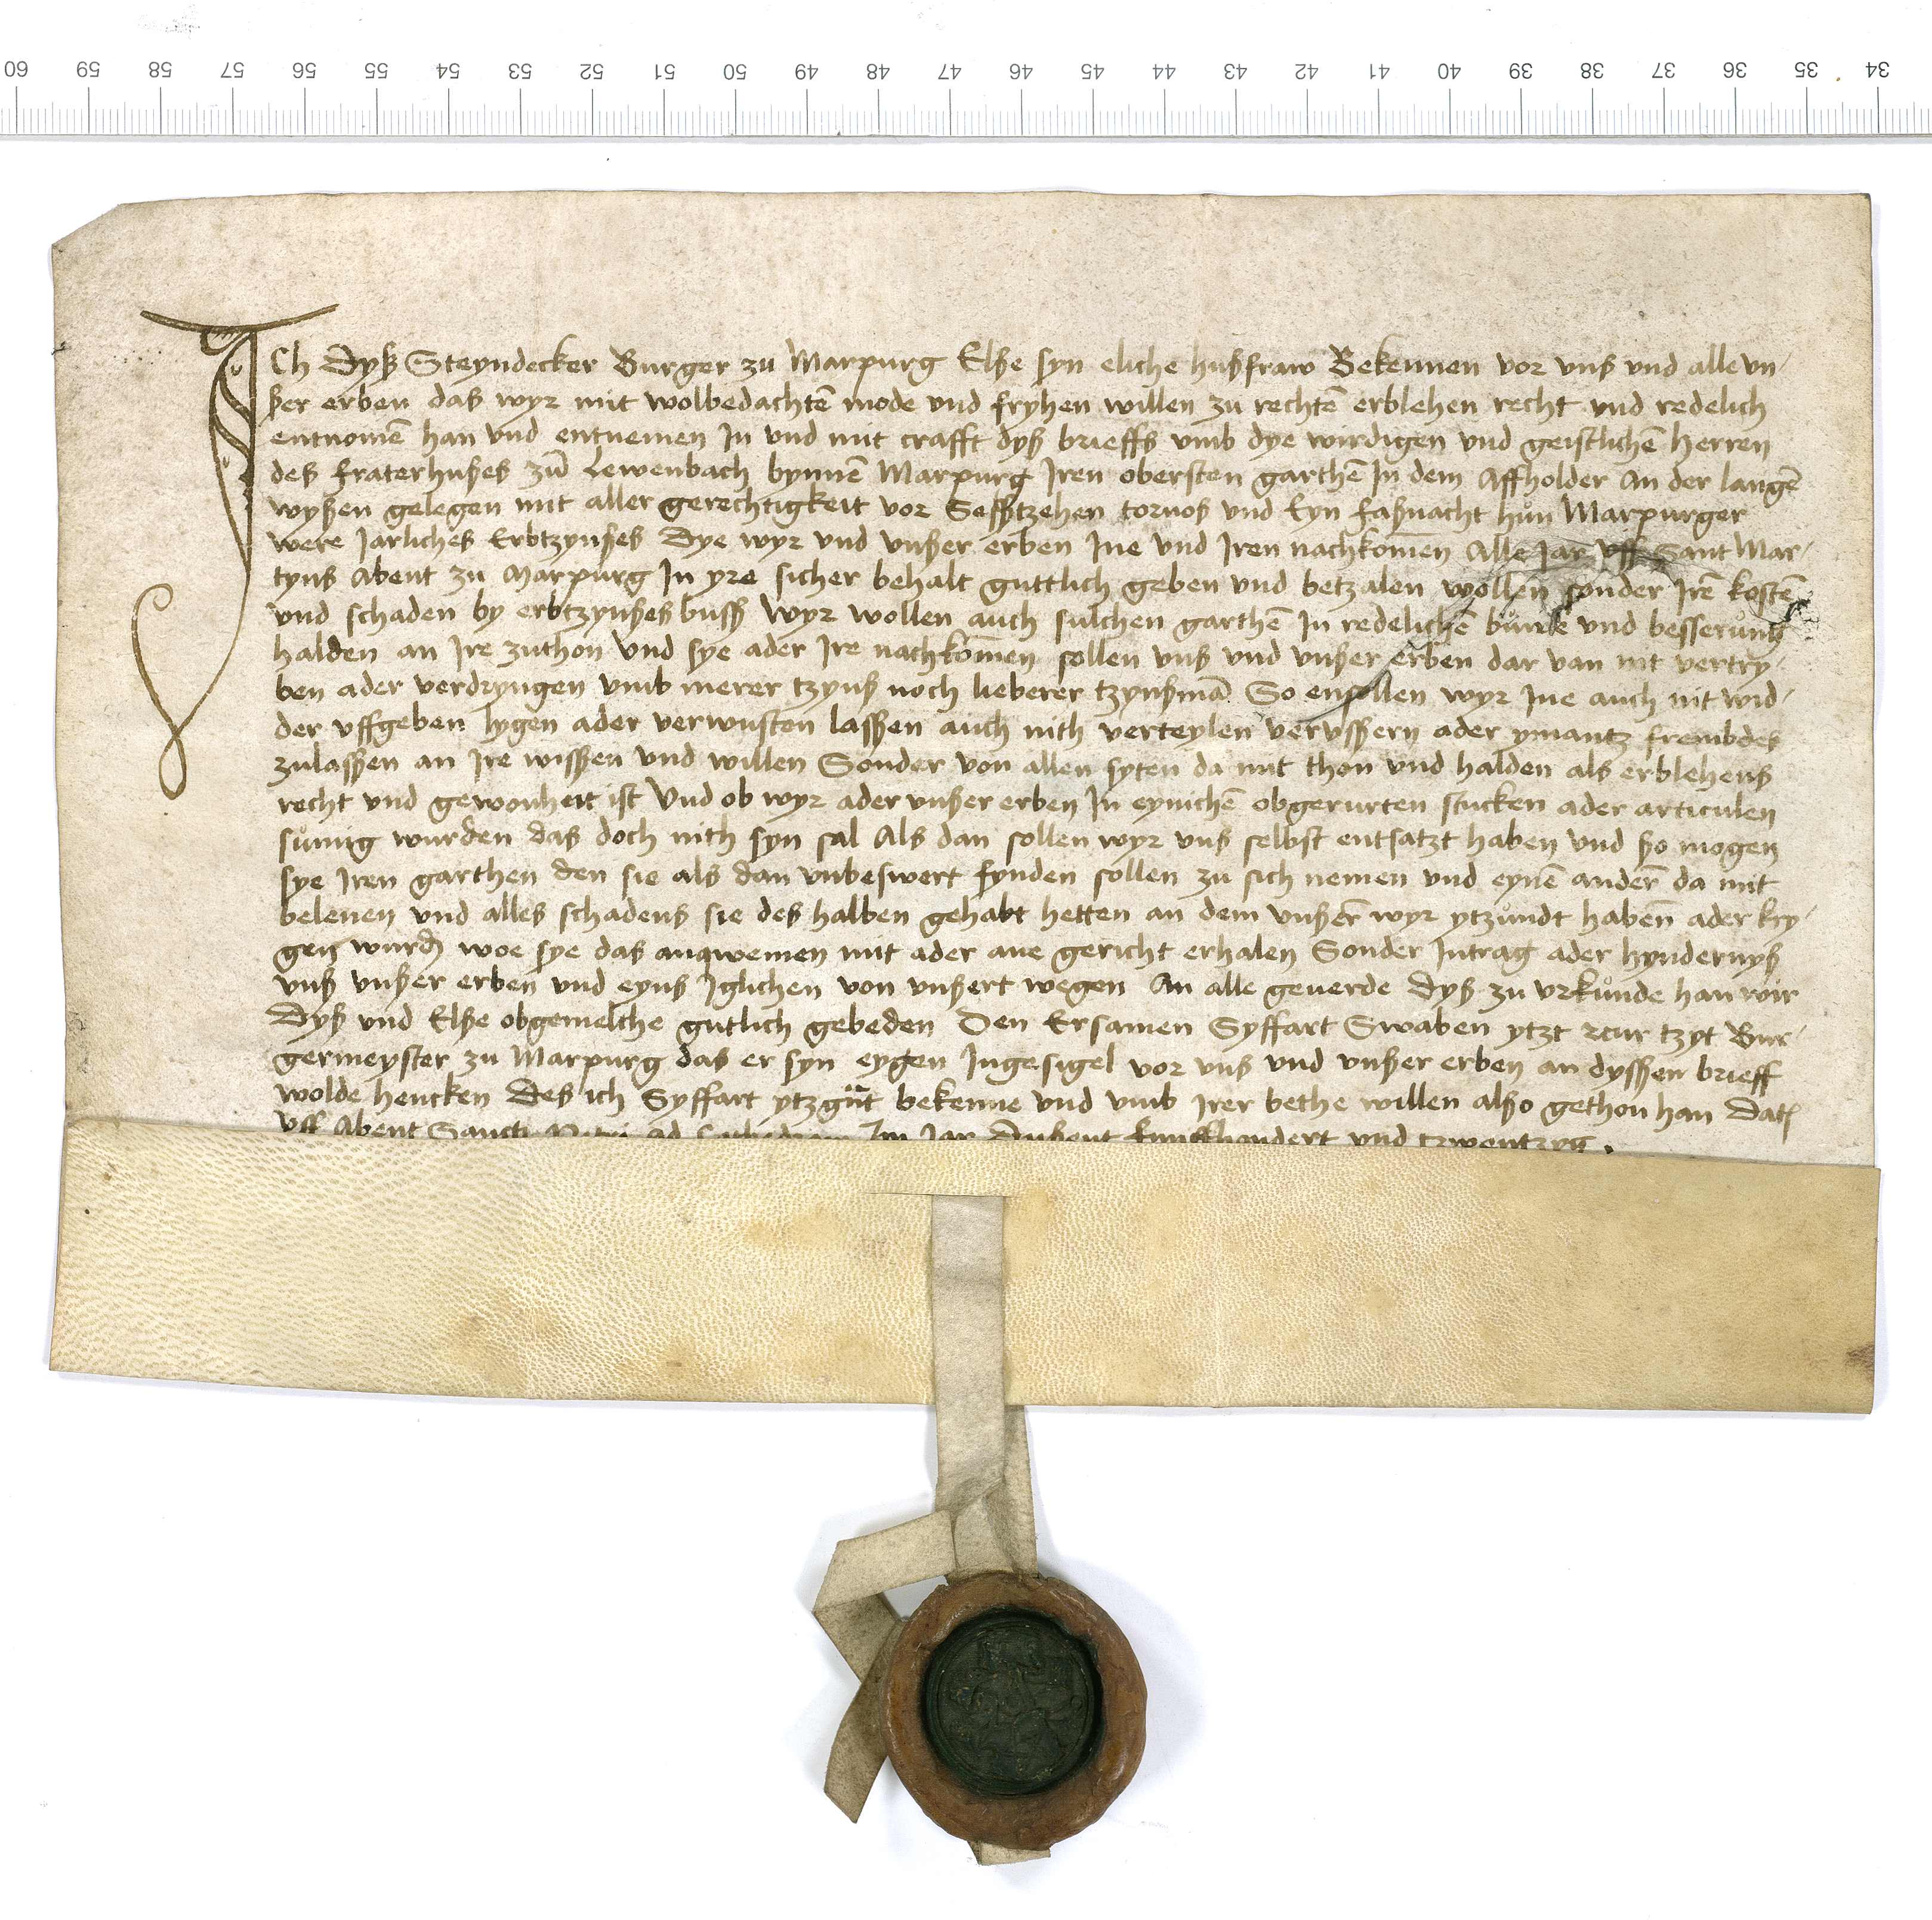 60 59 58 57 56 55 54 53 52 51 50 49 48 47 46 45 44 43 42 41 40 39 38 37 36 35 34
ICh Dyß Steyndecker Burger zu Marpurg Elße syn eliche hußfraw Bekennen vor vnß vnd alle vn-
ßer erben das wyr mit wolbedachtē mode vnd fryhen willen zu rechtē erblehen recht vnd redelich
entnomē han vnd entnemen In vnd mit crafft dyß brieffs vmb dye wirdigen vnd geistlichē herren
des fraterhußes zū Lewenbach bynnē Marpurg Iren obersten garthē In dem Affholder An der langē
wyßen gelegen mit aller gerechtigkeit vor Seßtzehen tornos vnd Eyn faßnacht hůn Marpurger
were Jarliches Erbtzynßes Dye wyr vnd vnßer erben Ine vnd Iren nachkomēn Alle Jar vff Sant Mar-
tyns Abent zu Marpurg In yre sicher behalt guttlich geben vnd betzalen wollen sonder Irē kostē
vnd schaden by erbtzynßes buß Wyr wollen auch sulchen garthē In redelichē bůwe vnd besserůng
halden an Ire zuthon Vnd sye ader Ire nachkomēn sollen vnß vnd vnßer erben dar van nit vertry-
ben ader verdryngen vmb merer tzynß noch lieberer tzynßmā So ensollen wyr Ine auch nit wid-
der vffgeben lygen ader verwusten laßen auch nith verteylen verußern ader ymantz frembdes
zulaßen an Ire wißen vnd willen Sonder von allen syten da mit thon vnd halden als erblehens
recht vnd gewonheit ist Vnd ob wyr ader vnßer erben In eynichē obgerurten stucken ader articulen
sůmig wurden das doch nith syn sal Als dan sollen wyr vns selbst entsatzt haben vnd ßo mogen
sye Iren garthen den sie als dan vnbeswert fynden sollen zu sich nemen vnd eynē anderē da mit
belenen vnd alles schadens sie des halben gehabt hetten an dem vnßerē wyr ytzůndt habenn ader kry-
gen wurdē woe sye das anqwemen mit ader ane gericht erhalen Sonder Intrag ader hyndernyß
vnß vnßer erben vnd eynß Iglichen von vnßert wegen An alle geuerde Dyß zu vrkůnde han wir
Dyß vnd Elße obgemelche gutlich gebeden Den Ersamen Syffart Swaben ytzt zcur tzyt Bur-
germeyster zu Marpurg das er syn eygen Ingesigel vor vnß vnd vnßer erben an dyssen brieff
wolde hencken Des ich Syffart ytzgnͣt bekenne vnd vmb Irer bethe willen also gethon han Datē
Vff Abent Sancti Petri ad Cathedram Im Jar Dußent funffhondert vnd tzwentzyg.